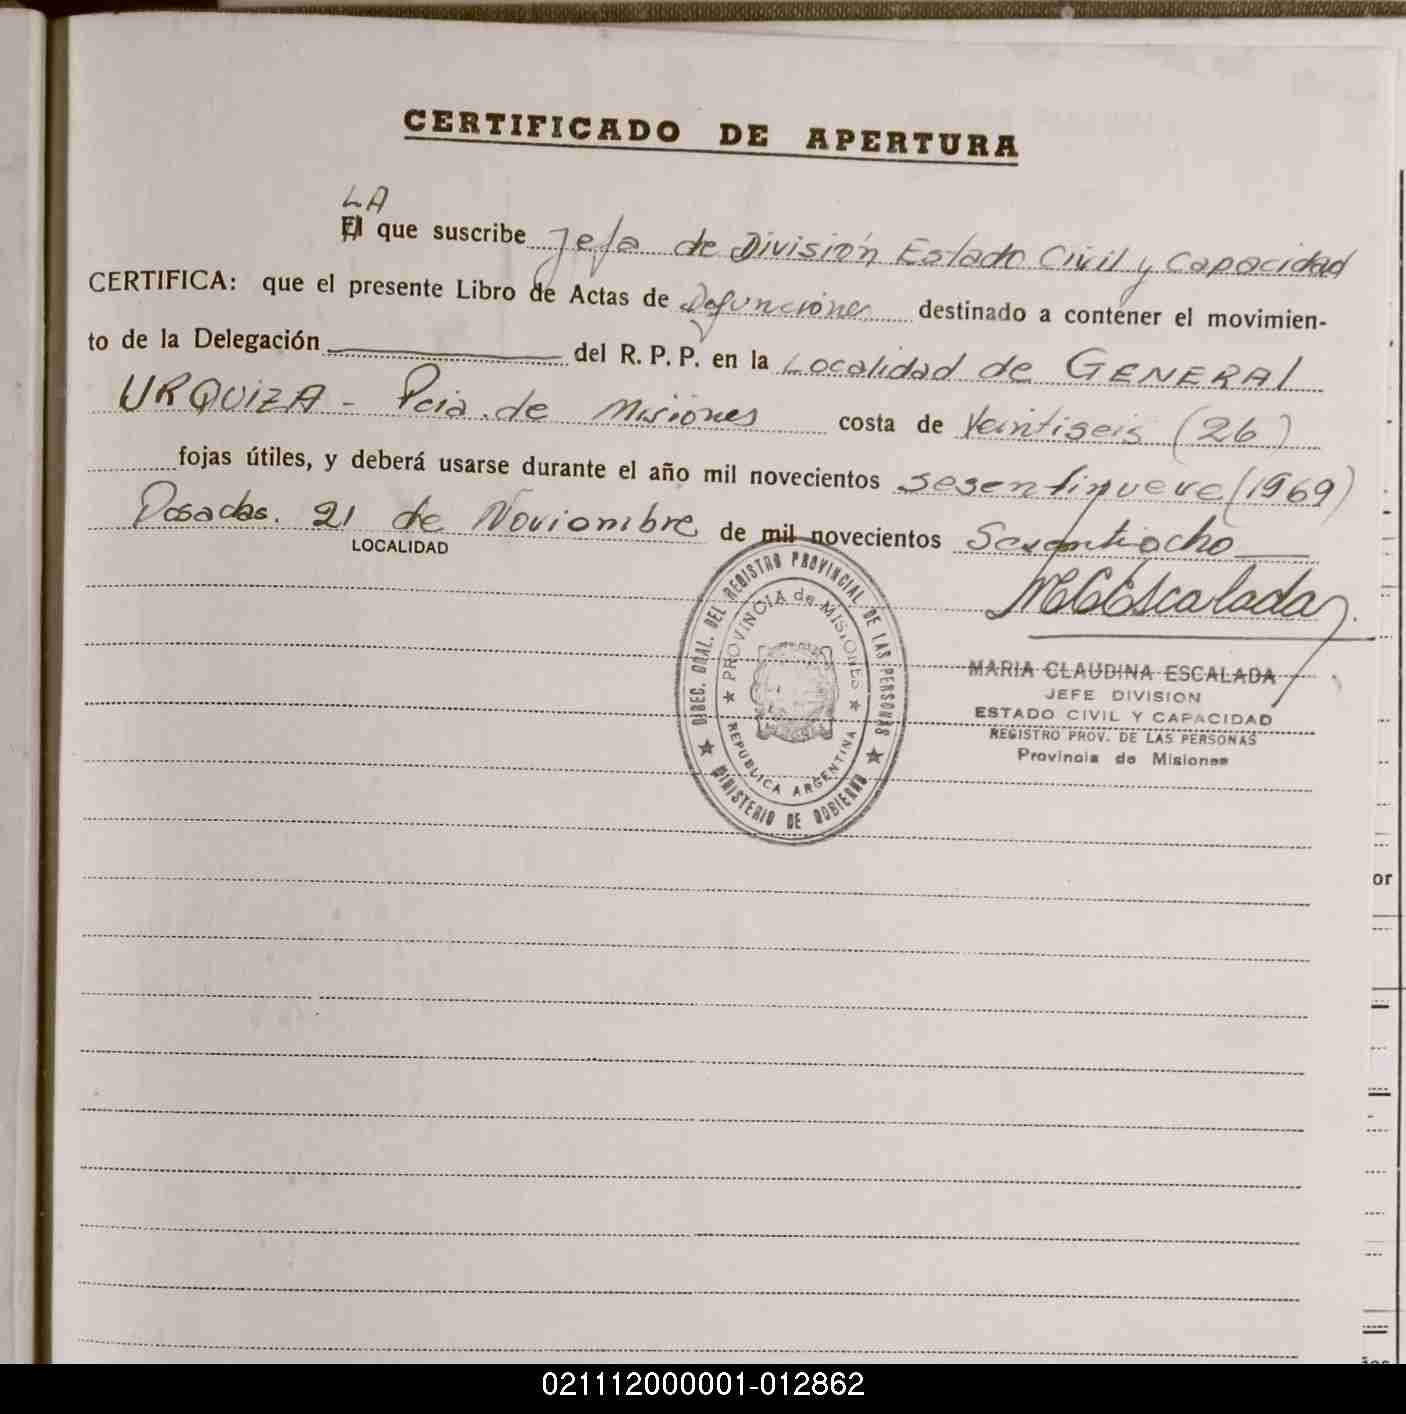 CERTIFICADO DE APERTURA
LA
El que suscribe Jefa de División Estado Civil y Capacidad
CERTIFICA: que el presente Libro de Actas de Defunciones destinado a contener el movimien-
to de la Delegación del R. P. P. en la Localidad de GENERAL
URQUIZA - Pcia. de Misiones costa de Veintiseis (26)
fojas útiles, y deberá usarse durante el año mil novecientos sesentinueve (1969)
Posadas. 21 de Noviembre de mil novecientos Sesentiocho
LOCALIDAD
MCEscalada
DIREC. GRAL. DEL REGISTRO PROVINCIAL DE LAS PERSONAS
PROVINCIA de MISIONES
REPUBLICA ARGENTINA
MINISTERIO DE GOBIERNO
MARIA CLAUDINA ESCALADA
JEFE DIVISION
ESTADO CIVIL Y CAPACIDAD
REGISTRO PROV. DE LAS PERSONAS
Provincia de Misiones
or
021112000001-012862